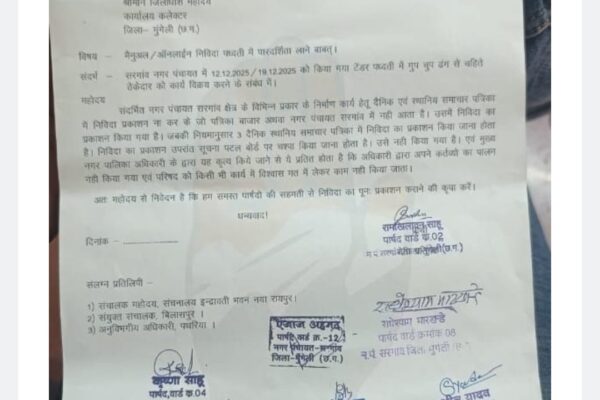 श्रीमान जिलाधीश महोदय
कार्यालय कलेक्टर
जिला– मुंगेली (छ.ग.)
विषय – मैनुअल/ऑनलाईन निविदा पध्दती में पारदर्शिता लाने बाबत्।
संदर्भ – सरगांव नगर पंचायत में 12.12.2025/19.12.2025 को किया गया टेंडर पध्दती में गुप चुप ढंग से चहिते
ठेकेदार को कार्य विक्रय करने के संबंध में।
महोदय
संदर्भित नगर पंचायत सरगांव क्षेत्र के विभिन्न प्रकार के निर्माण कार्य हेतु दैनिक एवं स्थानिय समाचार पत्रिका
में निविदा प्रकाशन ना कर के जो पत्रिका बाजार अथवा नगर पंचायत सरगांव में नही आता है। उसमें निविदा का
प्रकाशन किया गया है। जबकी नियमानुसार 3 दैनिक स्थानिय समाचार पत्रिका में निविदा का प्रकाशन किया जाना होता
है। निविदा का प्रकाशन उपरांत सूचना पटल बोर्ड पर चश्पा किया जाना होता है। उसे नही किया गया है। एवं मुख्य
नगर पालिका अधिकारी के द्वारा यह कृत्य किये जाने से ये प्रतित होता है कि अधिकारी द्वारा अपने कर्तव्यो का पालन
नही किया गया एवं परिषद को किसी भी कार्य में विश्वास गत में लेकर काम नही किया जाता।
अतः महोदय से निवेदन है कि हम समस्त पार्षदो की सहमती से निविदा का पुनः प्रकाशन कराने की कृपा करें।
धन्यवाद!
दिनांक –
रामखिलावन साहू
पार्षद वार्ड क्र.02
मुंगेली(छ.ग.)
संलग्न प्रतिलिपी –
1) संचालक महोदय, संचनालय इन्द्रावती भवन नया रायपुर।
2) संयुक्त संचालक, बिलासपुर।
3) अनुविभगीय अधिकारी, पथरिया ।
राधेश्याम
पार्षद वार्ड क्रमांक 08
न.पं. सरगांव जिला मुंगेली
एजाज अहमद
पार्षद वार्ड क्र.-12
नगर पंचायत-सरगांव
जिला-मुंगेली (छ.ग.)
कृष्णा साहू
पार्षद, वार्ड क्र.04
यादव